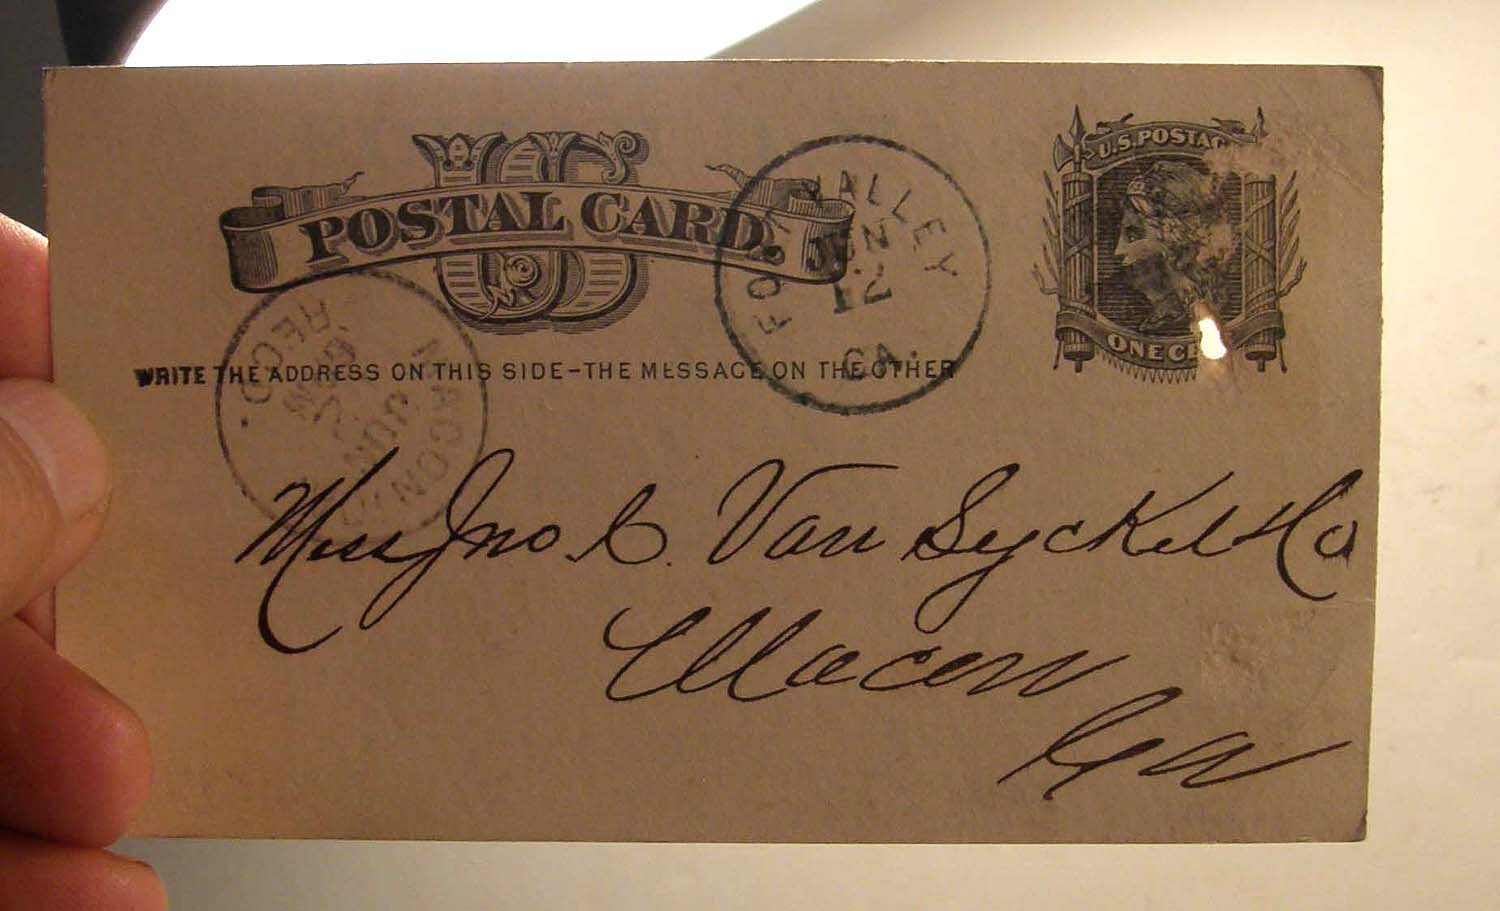 US
POSTAL CARD.
U.S. POSTAG
ONE CE
FORT VALLEY
JUN
12
GA.
WRITE THE ADDRESS ON THIS SIDE-THE MESSAGE ON THE OTHER
MACON
JUN
REC'D.
Mess Jno. C. Van Syckel & Co
Macon
Ga